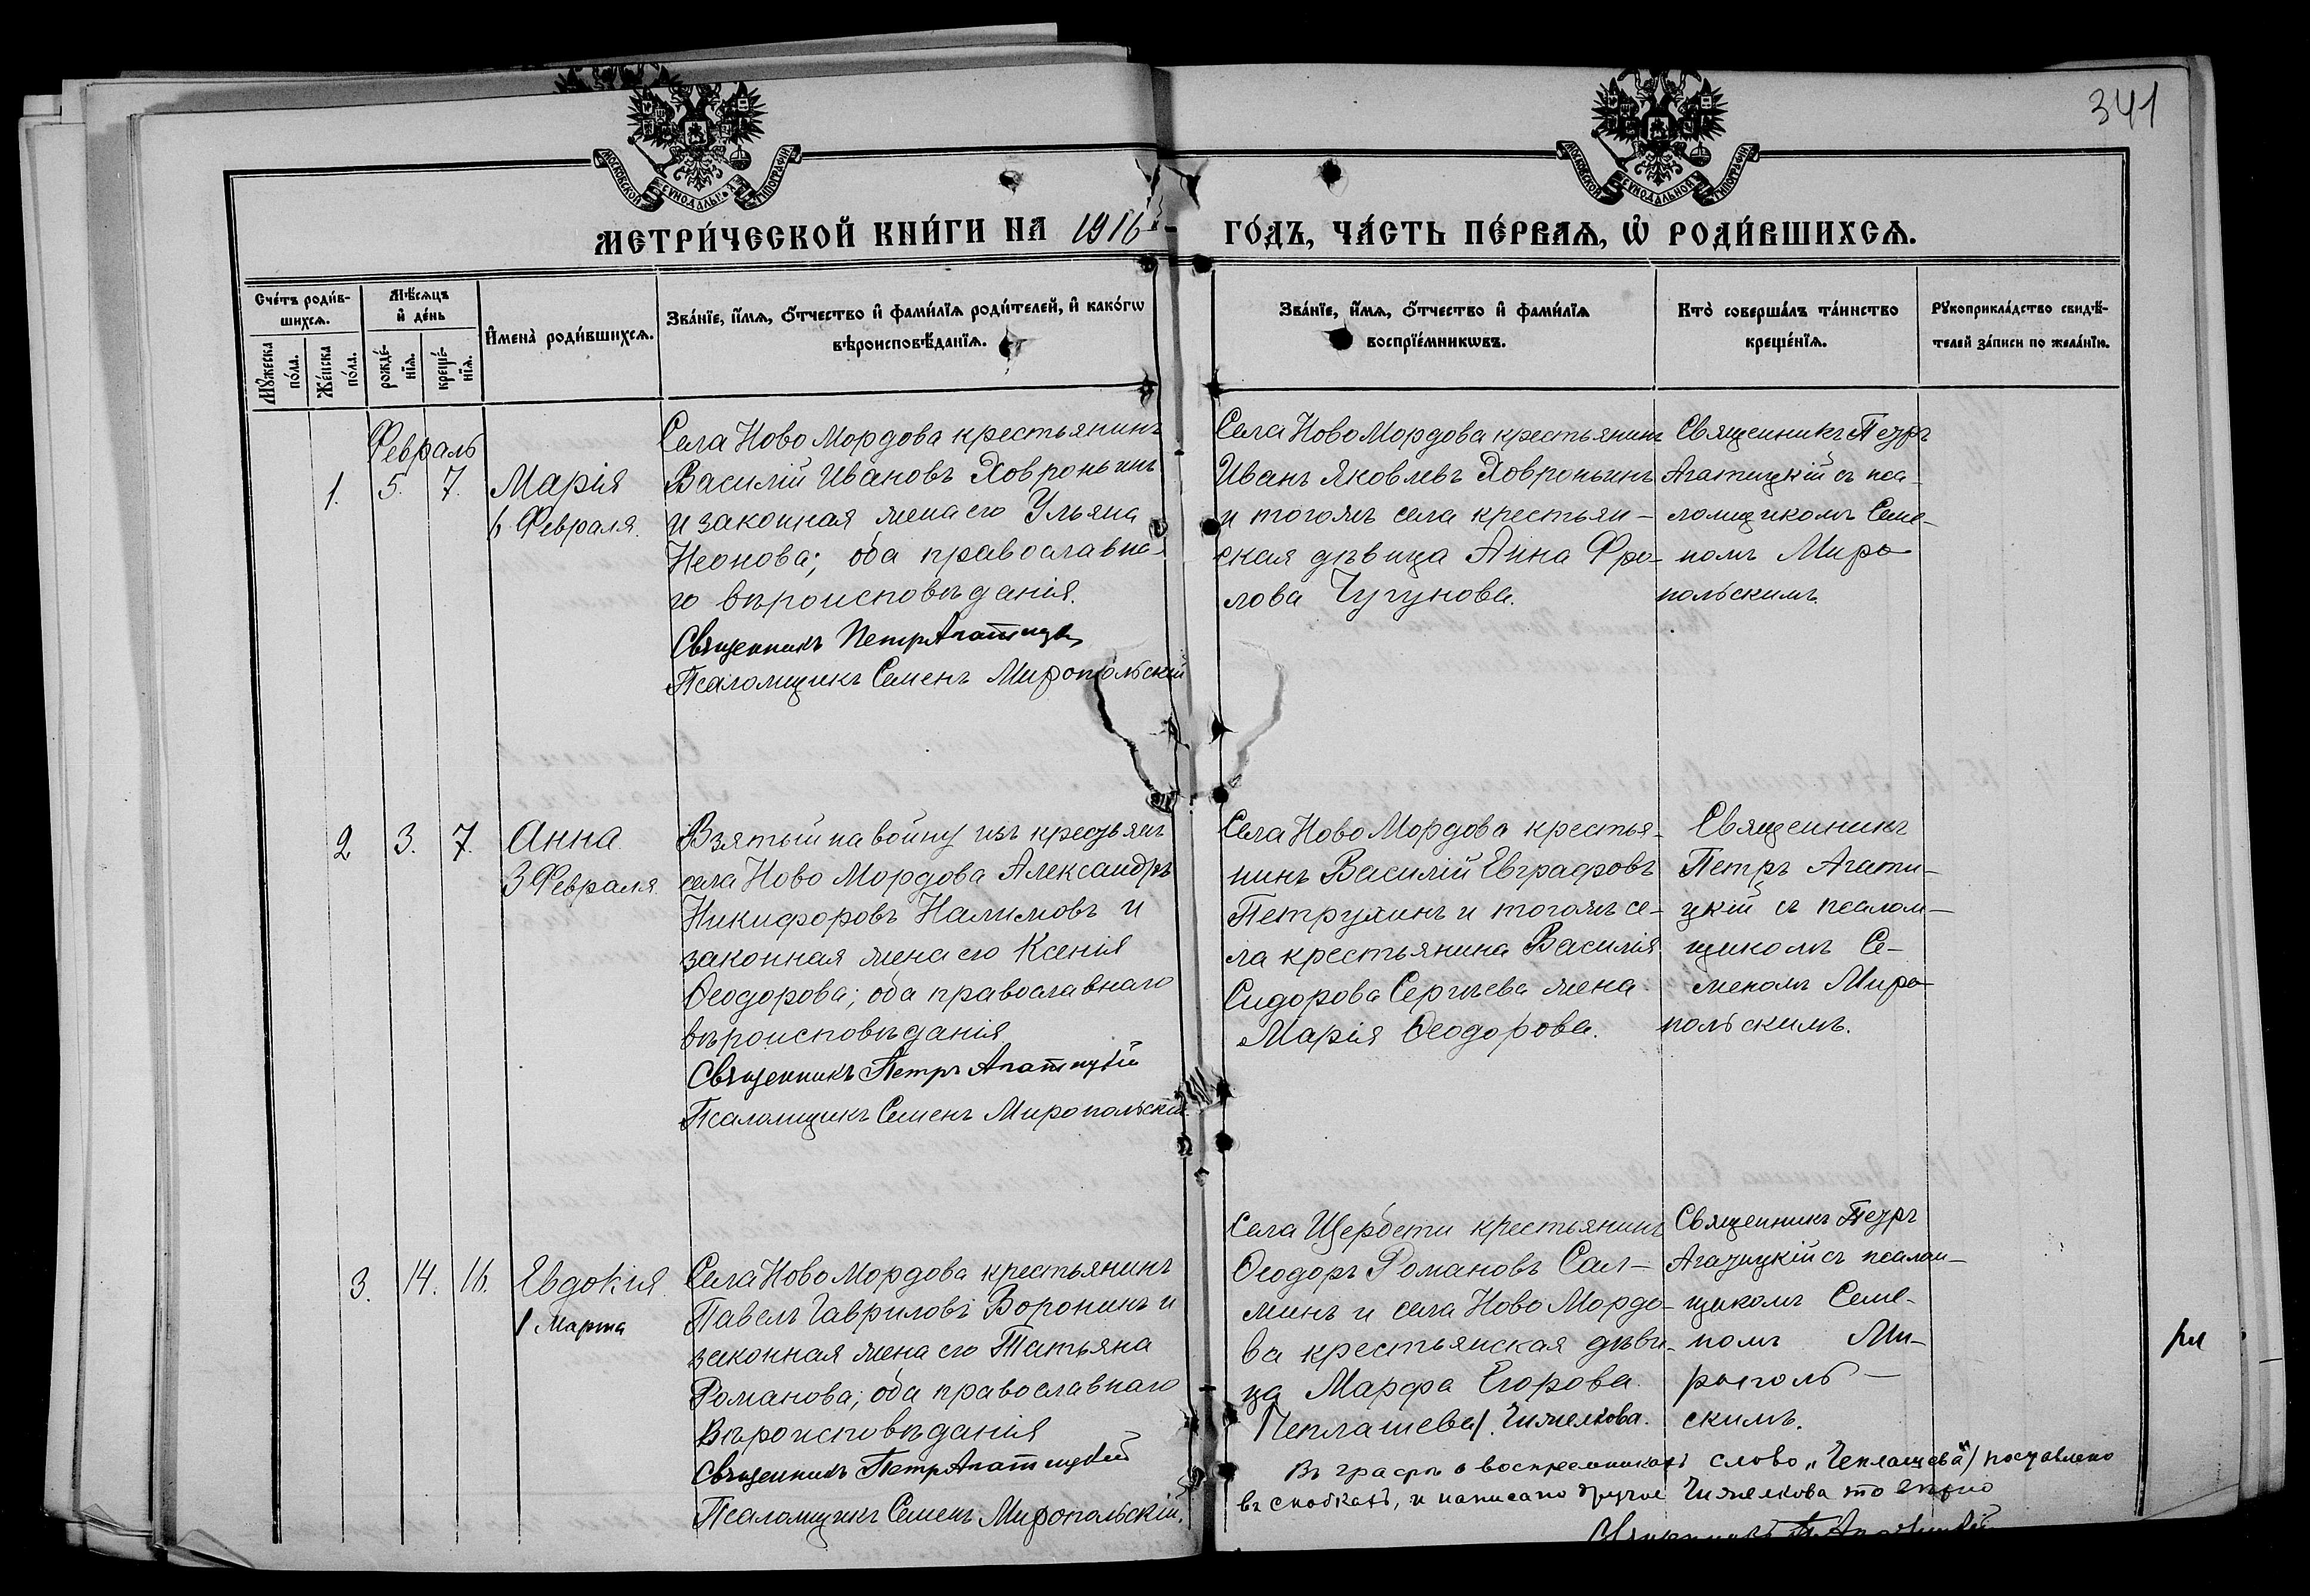 341
МОСКОВСКОЙ СѴНОДАЛЬНОЙ ТИПОГРАФІИ
МОСКОВСКОЙ СѴНОДАЛЬНОЙ ТИПОГРАФІИ
МЕТРИ́ЧЕСКОЙ КНИ́ГИ НА 1916 ГО́ДЪ, ЧА́СТЬ ПЕ́РВАЯ, Ѡ РОДИ́ВШИХСЯ.
Сче́тъ роди́в-
шихся.
Мꙋжеска по́ла.
Же́нска по́ла.
Мѣ́сяцъ
и де́нь
рожде́-
нїя.
креще́-
нїя.
Имена̀ роди́вшихся.
Зва́нїе, и́мя, о́тчество и фами́лїя роди́телей, и како́гѡ
вѣроисповѣ́данїя.
Зва́нїе, и́мя, о́тчество и фами́лїя
воспрїе́мникѡвъ.
Кто̀ соверша́лъ та́инство
креще́нїя.
Рꙋкоприкла́дство свидѣ́-
телей за́писи по жела́нїю.
Февраль
1. 5. 7.
Марія
6 Февраля.
Села Ново Мордова крестьянинъ
Василій Ивановъ Ховронинъ
и законная жена его Ульяна
Неонова; оба православна-
го вѣроисповѣданія.
Священникъ Петръ
Псаломщикъ Семенъ Миропольскій
Села Ново Мордова крестьянинъ
Иванъ Яковлевъ
и тогожъ села крестьян-
ская дѣвица Анна Фро-
лова Чугунова.
Священникъ Петръ
Агатицкій съ пса-
ломщикомъ Семе-
номъ Миро-
польскимъ.
2 3. 7.
Анна
3 Февраля.
Взятый на войну изъ крестьянъ
села Ново Мордова Александръ
Никифоровъ Налимовъ и
законная жена его Ксенія
Ѳеодорова; оба православнаго
вѣроисповѣданія
Священникъ Петръ Агатицкій
Псаломщикъ Семенъ Миропольскій.
Села Ново Мордова крестья-
нинъ Василій Евграфовъ
Петрухинъ и тогожъ се-
ла крестьянина Василія
Сидорова Сергѣева жена
Марія Ѳеодорова.
Священникъ
Петръ Агати-
цкій съ псалом-
щикомъ Се-
меномъ Миро-
польскимъ.
3. 14. 16.
Евдокія.
1 Марта
Села Ново Мордова крестьянинъ
Павелъ Гавриловъ Воронинъ и
законная жена его Татьяна
Романова; оба православнаго
вѣроисповѣданія
Священникъ Петръ Агатицкій
Псаломщикъ Семенъ Миропольскій.
Села Щербети крестьянинъ
Ѳеодоръ Романовъ Сал-
минъ и села Ново Мордо-
ва крестьянская дѣви-
ца Марфа Егорова
Священникъ Петръ
Агатицкій съ псалом-
щикомъ Семе-
номъ Ми-
рополь-
скимъ.
Въ графѣ о воспреемникахъ слово поставлено
въ скобкахъ, и написано другое это вѣрно